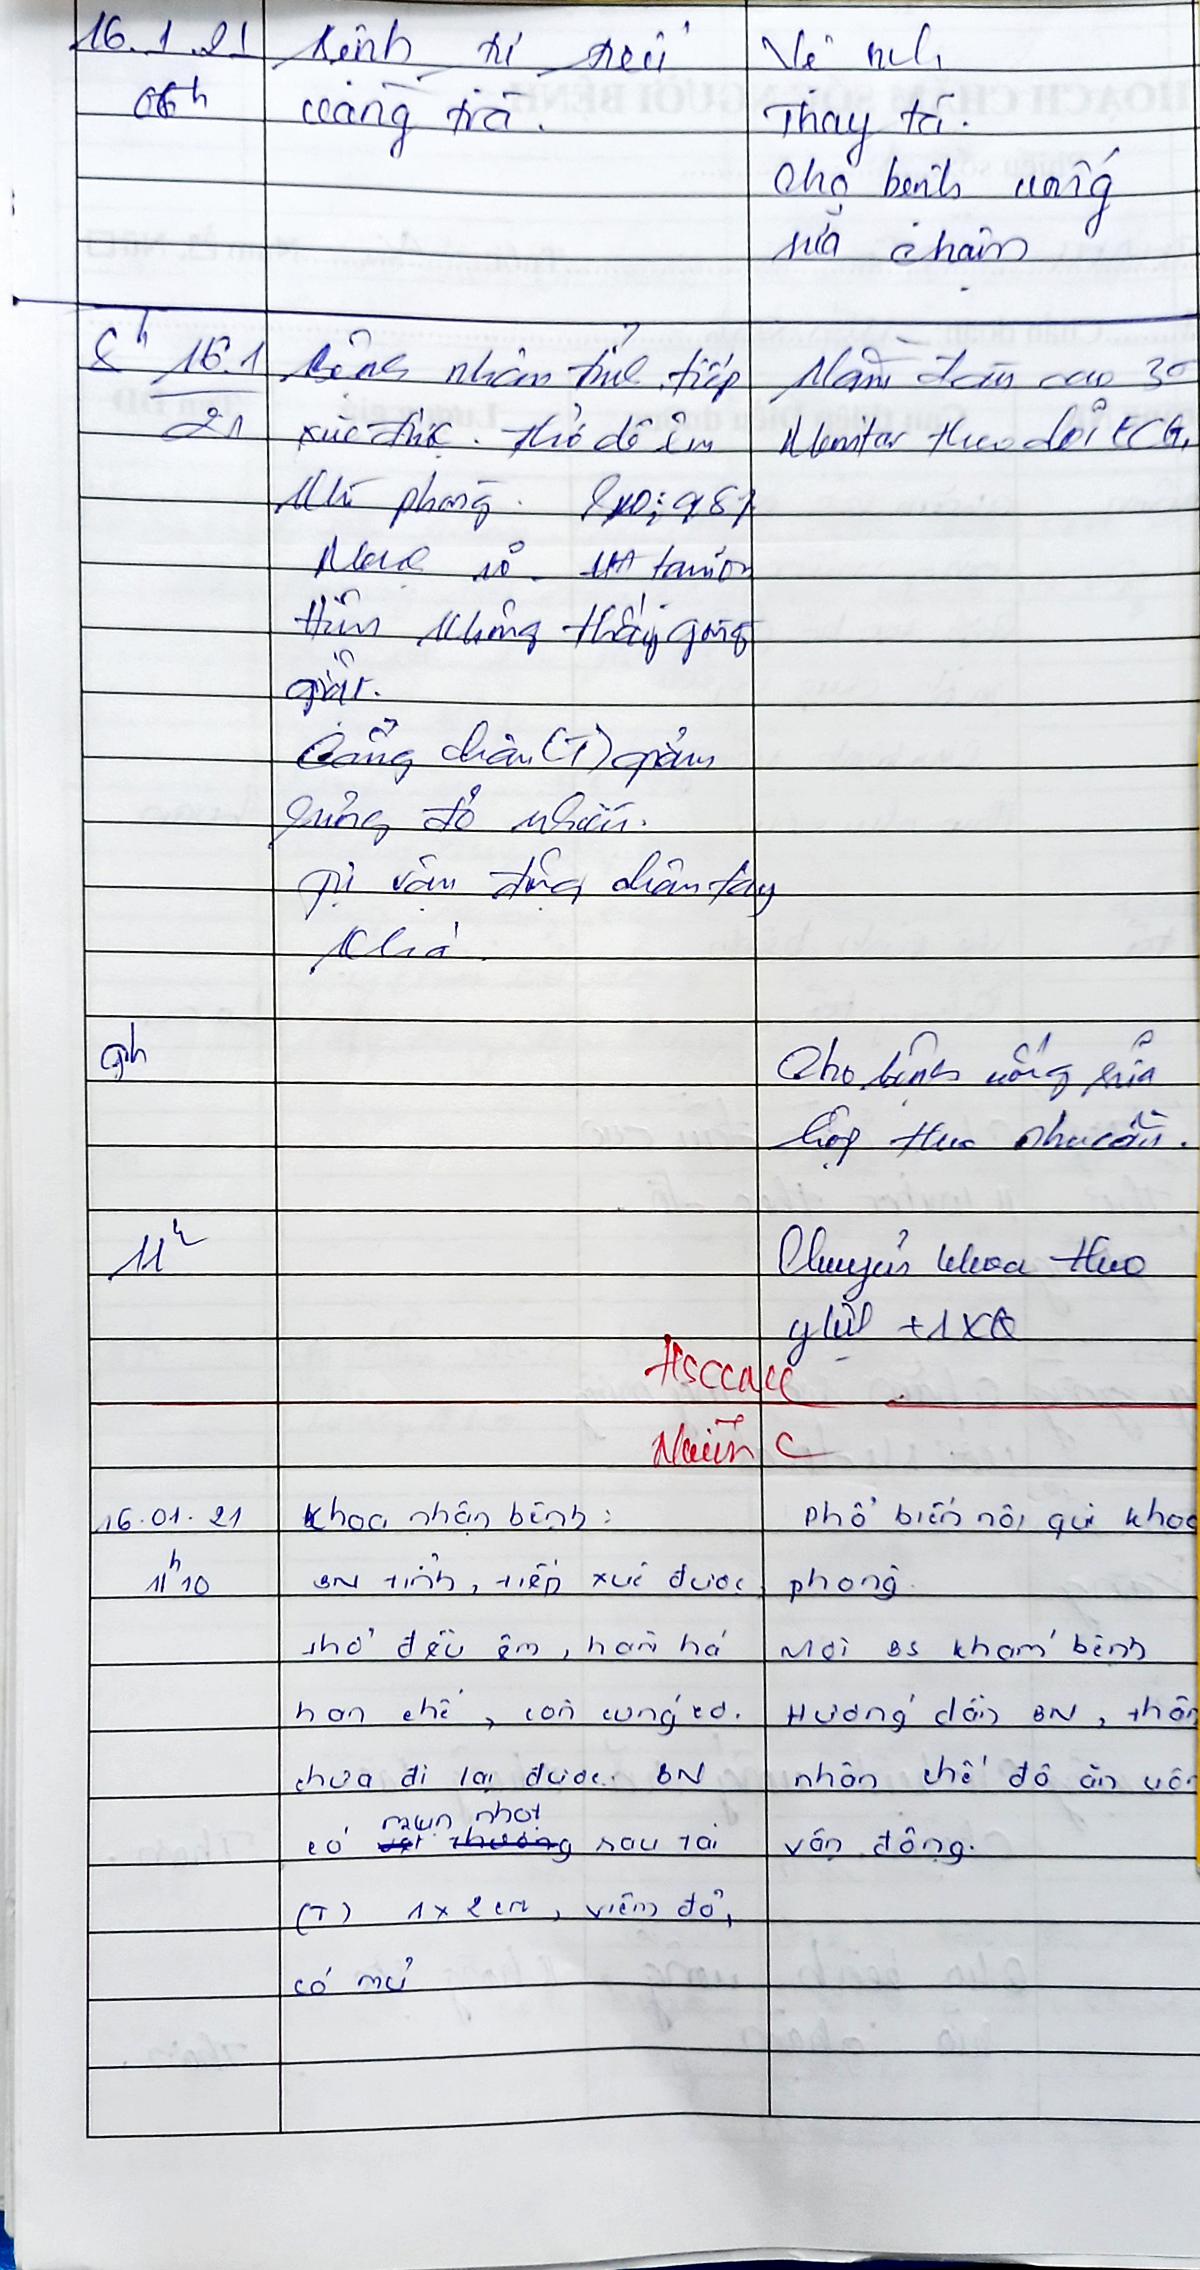 16.1.21
06h
Bệnh tri
vàng trà.
Vệ sinh
Thay tã.
Cho bệnh uống
sữa chậm
8h 16.1
21
Bệnh nhân tỉnh, tiếp
xúc được. thở đều êm
khí phòng. SpO2 98%
Mạch rõ. HA
Hiện không thấy gồng
giật.
Cẳng chân (T) giảm
sưng đỏ nhiều.
vận động chân tay
khá.
Nằm đầu cao 30
Monitor theo dõi ECG,
9h
Cho bệnh uống sữa
hộp theo nhu cầu.
11h
Chuyển khoa theo
y lệnh + 1XQ
HSCC
Nhiễm C
16.01.21
11h10
Khoa nhận bệnh:
BN tỉnh, tiếp xúc được,
thở đều êm, hán há
hạn chế, còn cứng cơ.
chưa đi lại được. BN
mụn nhọt
có sau tai
(T) 1x2cm, viêm đỏ,
có mủ
Phổ biến nội qui khoa
phòng.
Mời BS khám bệnh
Hướng dẫn BN, thân
nhân chế độ ăn uốn
vận động.